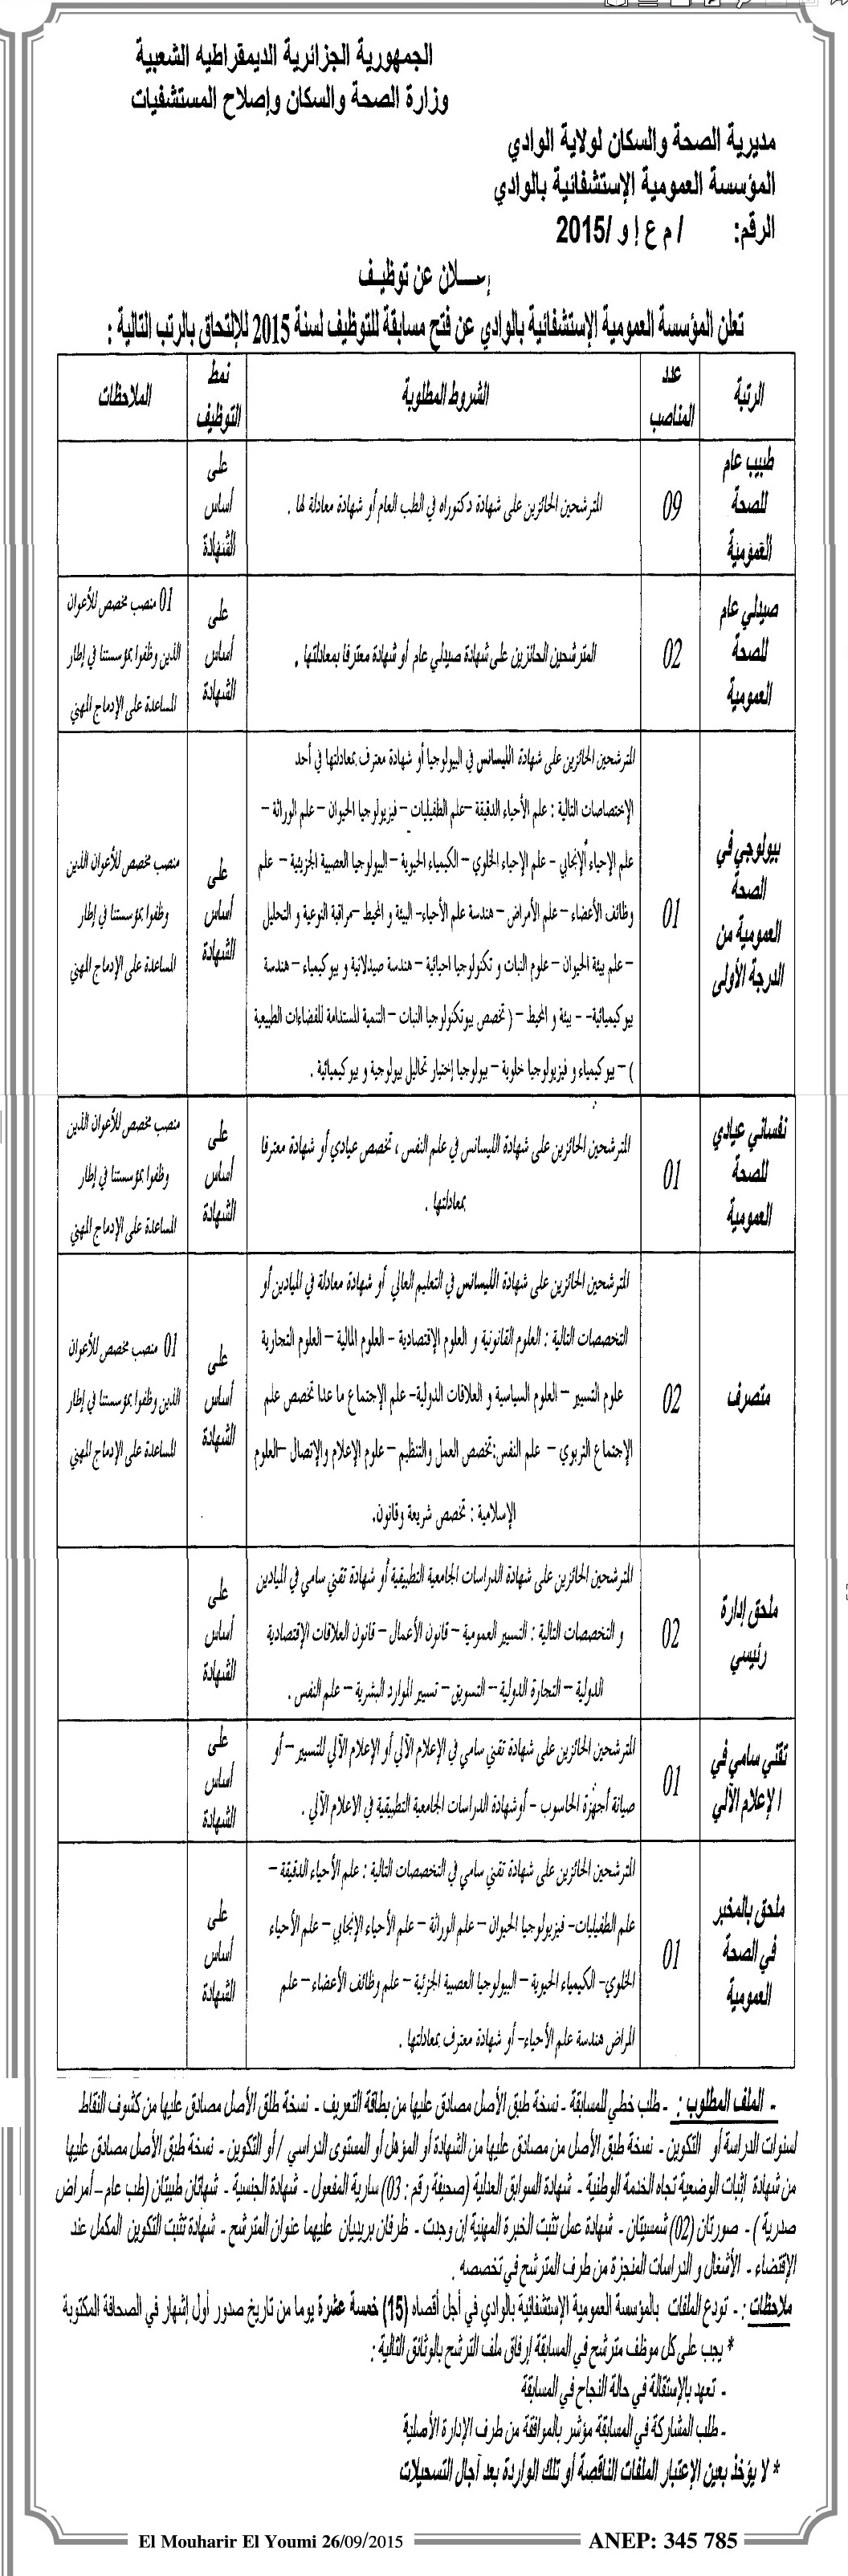 الجمهورية الجزائرية الديمقراطيه الشعبية
وزارة الصحة والسكان وإصلاح المستشفيات
مديرية الصحة والسكان لولاية الوادي
المؤسسة العمومية الإستشفائية بالوادي
الرقم: / م ع إ و /2015
إعلان عن توظيف
تعلن المؤسسة العمومية الإستشفائية بالوادي عن فتح مسابقة للتوظيف لسنة 2015 للإلتحاق بالرتب التالية :
الرتبة
عدد
المناصب
الشروط المطلوبة
نمط
التوظيف
الملاحظات
طبيب عام
للصحة
العمومية
09
المترشحين الحائزين على شهادة دكتوراه في الطب العام أو شهادة معادلة لها .
على
أساس
الشهادة
صيدلي عام
للصحة
العمومية
02
المترشحين الحائزين على شهادة صيدلي عام أو شهادة معترفا بمعادلتها .
على
أساس
الشهادة
01 منصب مخصص للأعوان
الذين وظفوا بمؤسستنا في إطار
المساعدة على الإدماج المهني
بيولوجي في
الصحة
العمومية من
الدرجة الأولى
01
المترشحين الحائزين على شهادة الليسانس في البيولوجيا أو شهادة معترف بمعادلتها في أحد
الإختصاصات التالية : علم الأحياء الدقيقة –علم الطفيليات – فيزيولوجيا الحيوان – علم الوراثة –
علم الإحياء الإنجابي – علم الإحياء الخلوي – الكيمياء الحيوية – البيولوجيا العصبية الجزيئية – علم
وظائف الأعضاء – علم الأمراض – هندسة علم الأحياء- البيئة و المحيط –مراقبة النوعية و التحليل
– علم بيئة الحيوان – علوم النبات و تكنولوجيا احيائية – هندسة صيدلانية و بيوكيمياء – هندسة
بيوكيميائية- - بيئة و المحيط – ( تخصص بيوتكنولوجيا النبات – التنمية المستدامة للفضاءات الطبيعية
) – بيوكيمياء و فيزيولوجيا خلوية – بيولوجيا إختيار تحاليل بيولوجية و بيوكيميائية .
على
أساس
الشهادة
منصب مخصص للأعوان الذين
وظفوا بمؤسستنا في إطار
المساعدة على الإدماج المهني
نفساني عيادي
للصحة
العمومية
01
المترشحين الحائزين على شهادة الليسانس في علم النفس ، تخصص عيادي أو شهادة معترفا
بمعادلتها .
على
أساس
الشهادة
منصب مخصص للأعوان الذين
وظفوا بمؤسستنا في إطار
المساعدة على الإدماج المهني
متصرف
02
المترشحين الحائزين على شهادة الليسانس في التعليم العالي أو شهادة معادلة في الميادين أو
التخصصات التالية : العلوم القانونية و العلوم الإقتصادية - العلوم المالية – العلوم التجارية
علوم التسيير – العلوم السياسية و العلاقات الدولية- علم الإجتماع ما عدا تخصص علم
الإجتماع التربوي – علم النفس:تخصص العمل والتنظيم – علوم الإعلام والإتصال –العلوم
الإسلامية : تخصص شريعة وقانون.
على
أساس
الشهادة
01 منصب مخصص للأعوان
الذين وظفوا بمؤسستنا في إطار
المساعدة على الإدماج المهني
ملحق إدارة
رئيسي
02
المترشحين الحائزين على شهادة الدراسات الجامعية التطبيقية أو شهادة تقني سامي في الميادين
و التخصصات التالية : التسيير العمومية – قانون الأعمال – قانون العلاقات الإقتصادية
الدولية – التجارة الدولية – التسويق – تسيير الموارد البشرية – علم النفس .
على
أساس
الشهادة
تقني سامي في
الإعلام الآلي
01
المترشحين الحائزين على شهادة تقني سامي في الإعلام الآلي أو الإعلام الآلي للتسيير – أو
صيانة أجهزة الحاسوب – أوشهادة الدراسات الجامعية التطبيقية في الاعلام الآلي .
على
أساس
الشهادة
ملحق بالمخبر
في الصحة
العمومية
01
المترشحين الحائزين على شهادة تقني سامي في التخصصات التالية : علم الأحياء الدقيقة –
علم الطفيليات- فيزيولوجيا الحيوان – علم الوراثة – علم الأحياء الإنجابي – علم الأحياء
الخلوي- الكيمياء الحيوية – البيولوجيا العصبية الجزئية – علم وظائف الأعضاء – علم
المراض هندسة علم الأحياء- أو شهادة معترف بمعادلتها .
على
أساس
الشهادة
- الملف المطلوب : - طلب خطي للمسابقة - نسخة طبق الأصل مصادق عليها من بطاقة التعريف - نسخة طلق الأصل مصادق عليها من كشوف النقاط
لسنوات الدراسة أو التكوين - نسخة طبق الأصل من مصادق عليها من الشهادة أو المؤهل أو المستوى الدراسي / أو التكوين - نسخة طبق الأصل مصادق عليها
من شهادة إثبات الوضعية تجاه الخدمة الوطنية - شهادة السوابق العدلية (صحيفة رقم : 03) سارية المفعول - شهادة الجنسية - شهاتان طبيتان (طب عام –أمراض
صدرية ) - صورتان (02) شمسيتان - شهادة عمل تثبت الخبرة المهنية إن وجدت - ظرفان بريديان عليهما عنوان المترشح - شهادة تثبت التكوين المكمل عند
الإقتضاء - الأشغال و الدراسات المنجزة من طرف المترشح في تخصصه .
ملاحظات : - تودع الملفات بالمؤسسة العمومية الإستشفائية بالوادي في أجل أقصاه (15) خمسة عشرة يوما من تاريخ صدور أول إشهار في الصحافة المكتوبة
* يجب على كل موظف مترشح في المسابقة إرفاق ملف الترشح بالوثائق التالية :
- تعهد بالإستقالة في حالة النجاح في المسابقة
- طلب المشاركة في المسابقة مؤشر بالموافقة من طرف الإدارة الأصلية
* لا يؤخذ بعين الإعتبار الملفات الناقصة أو تلك الواردة بعد آجال التسجيلات
El Mouharir El Youmi 26/09/2015
ANEP: 345 785